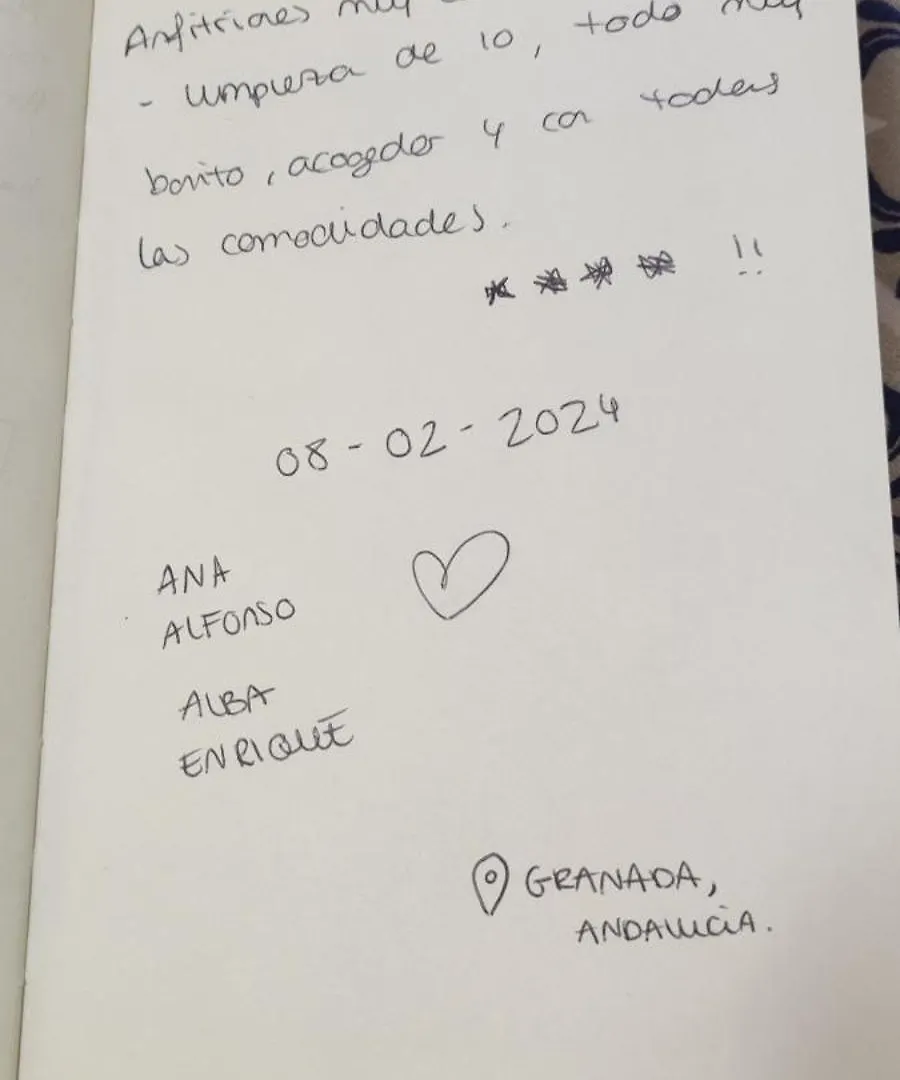 Anfitriones muy
- Limpieza de 10, todo muy
bonito, acogedor y con todas
las comodidades.
**** !!
08-02-2024
ANA
ALFONSO
ALBA
ENRIQUE
GRANADA,
ANDALUCIA.